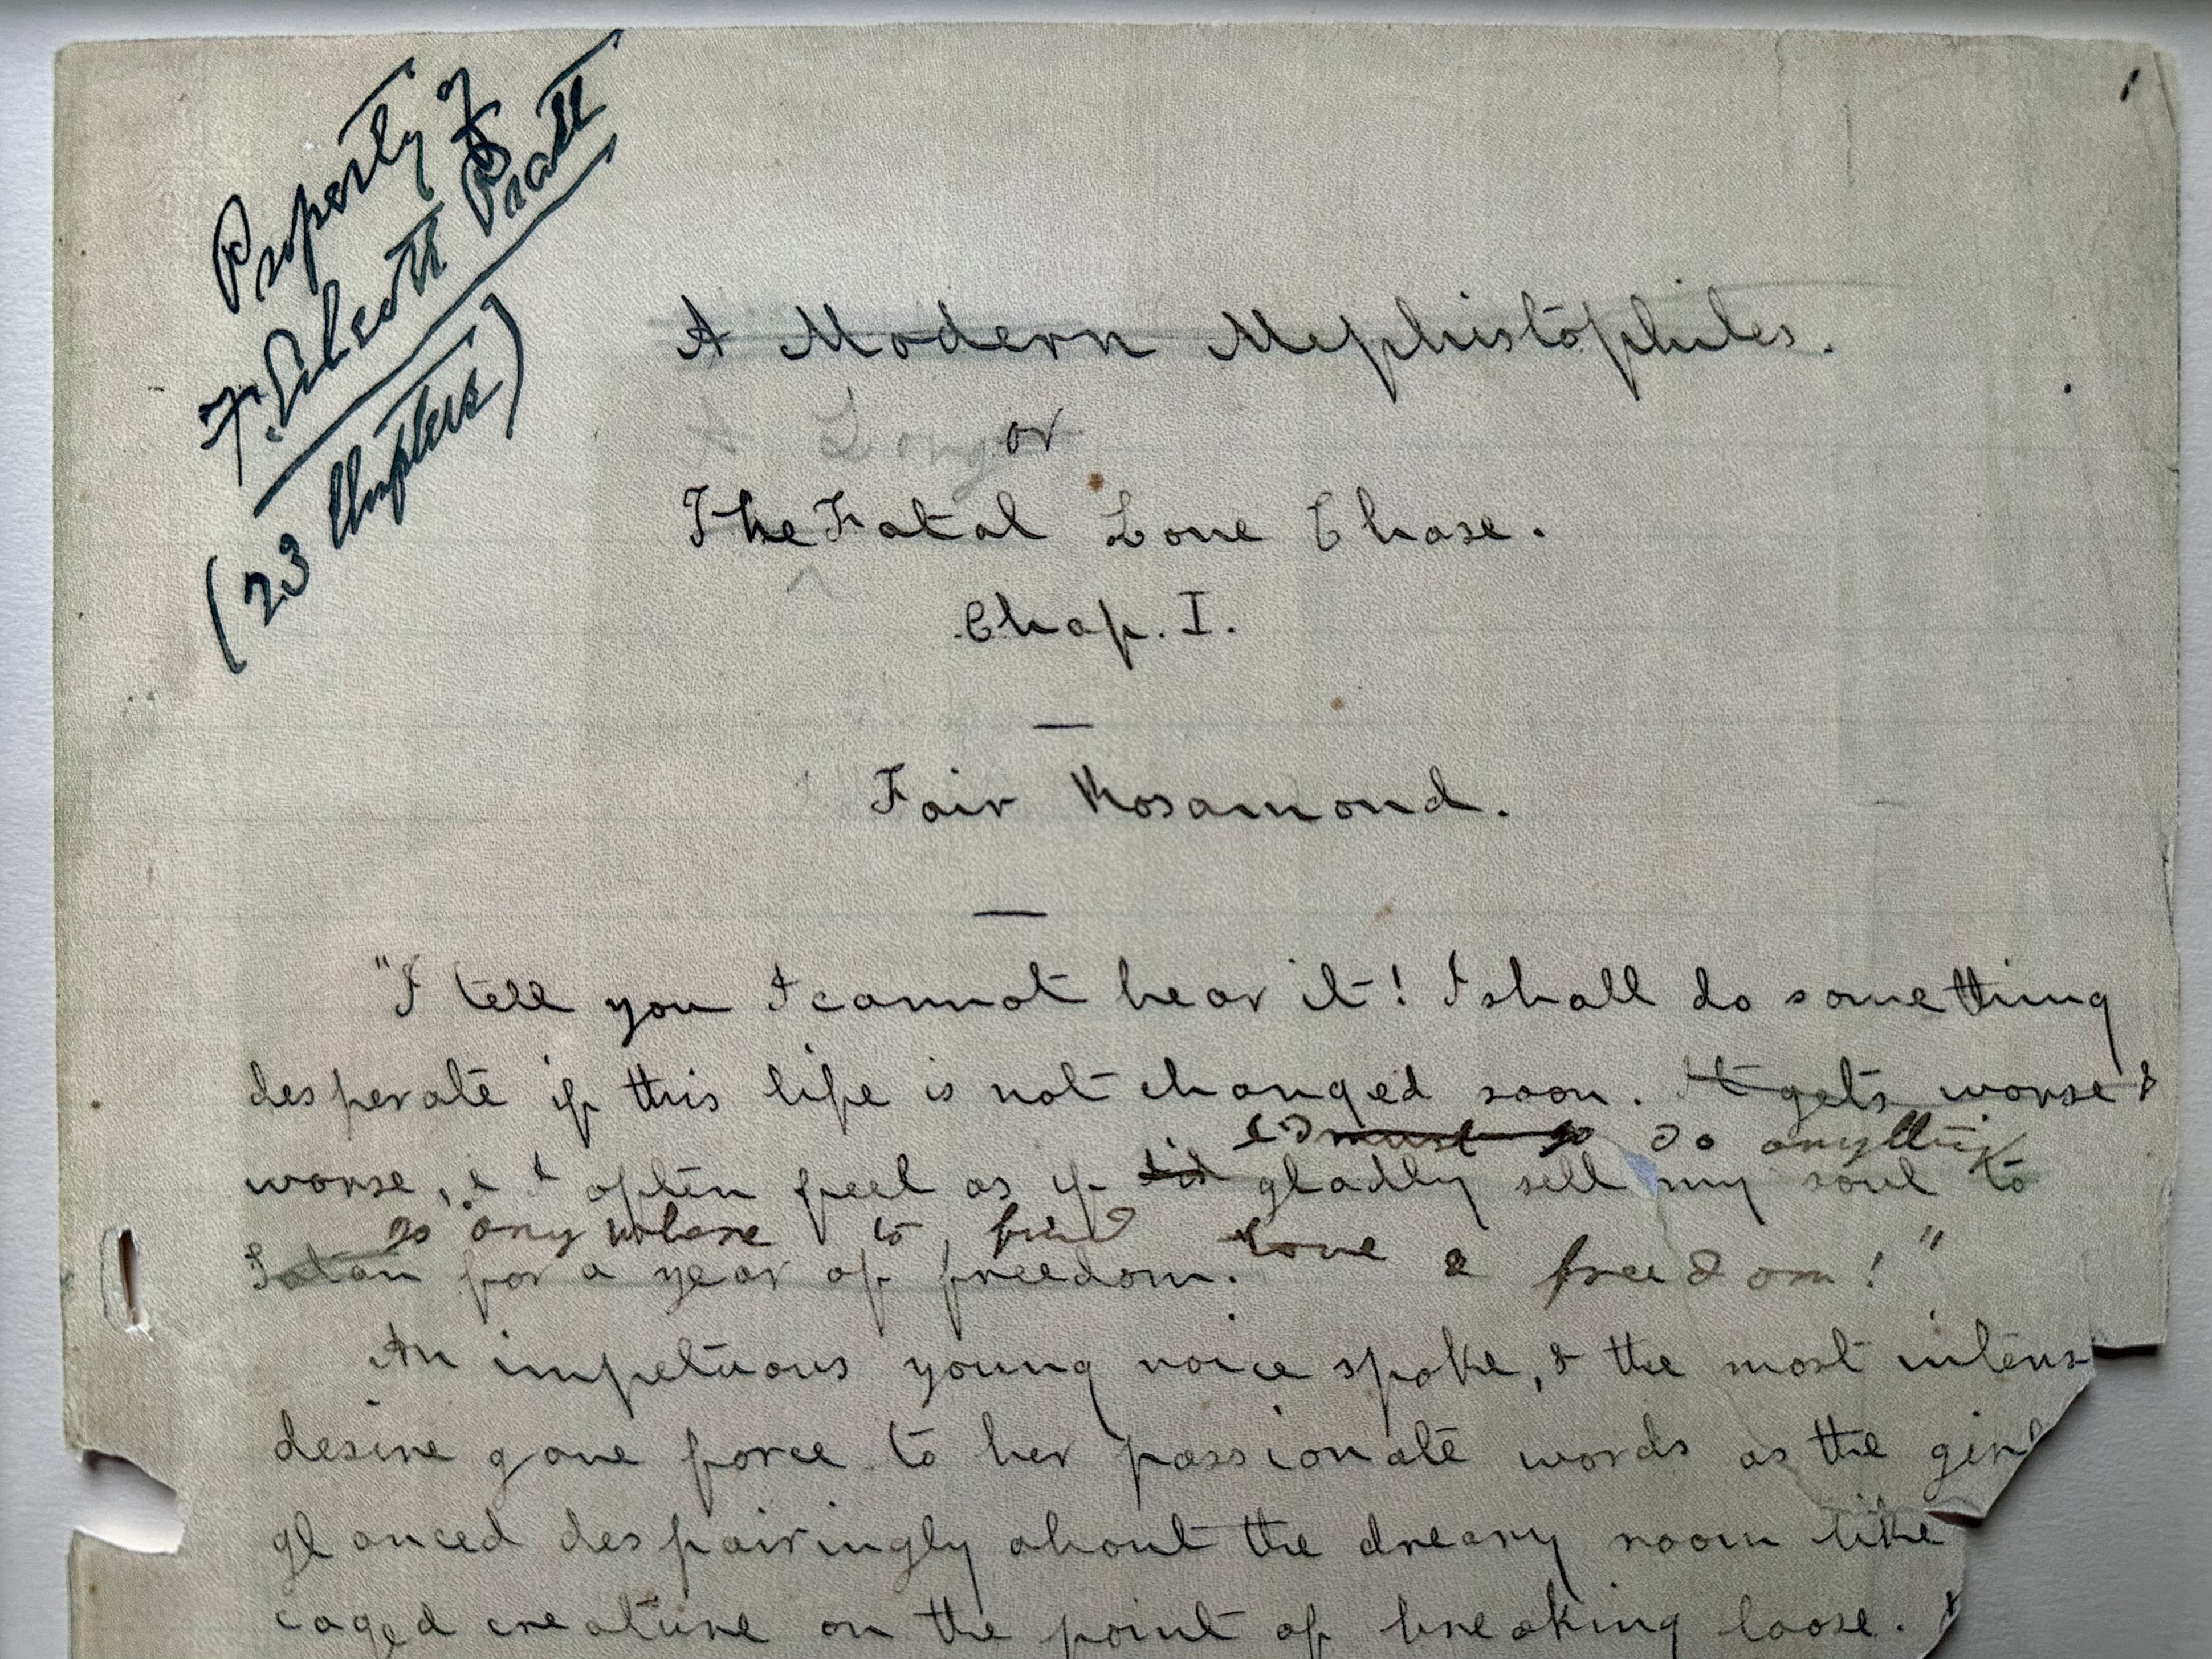 Property of
F. Alcott Pratt
(23 Chapters)
1
A Modern Mephistophiles.
A Long
or
The Fatal Love Chase.
Chap. I.
Fair Rosamond.
"I tell you I cannot bear it! I shall do something
desperate if this life is not changed soon. It gets worse &
I'd must go do anything
worse, & I often feel as if I'd gladly sell my soul to
go any where to, find love & freedom!"
Satan for a year of freedom.
An impetuous young voice spoke, & the most intens
desire gave force to her passionate words as the girl
glanced despairingly about the dreary room like
caged creature on the point of breaking loose.